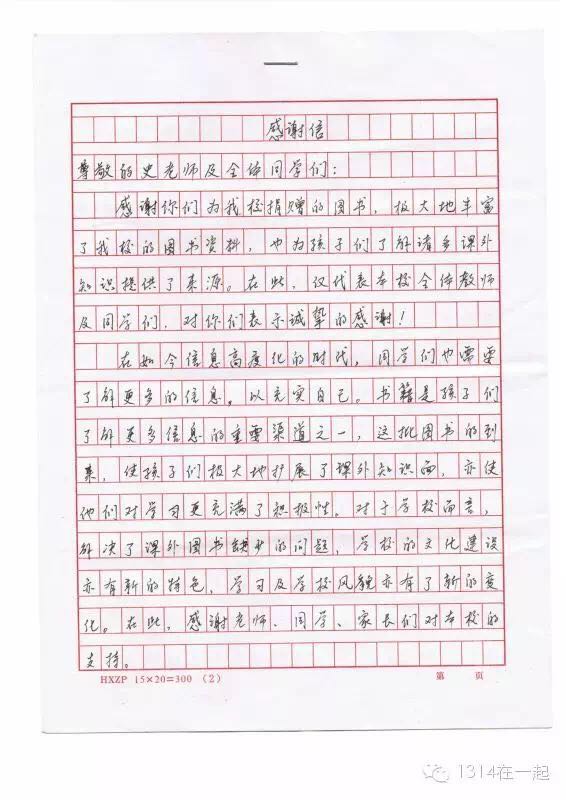 感谢信
尊敬的史老师及全体同学们：
感谢你们为我校捐赠的图书，极大地丰富
了我校的图书资料，也为孩子们了解诸多课外
知识提供了来源。在此，仅代表本校全体教师
及同学们，对你们表示诚挚的感谢！
在如今信息高度化的时代，同学们也需要
了解更多的信息，以充实自己。书籍是孩子们
了解更多信息的重要渠道之一，这批图书的到
来，使孩子们极大地扩展了课外知识面，亦使
他们对学习更充满了积极性。对于学校而言，
解决了课外图书缺少的问题，学校的文化建设
亦有新的特色，学习及学校风貌亦有了新的变
化。在此，感谢老师、同学、家长们对本校的
支持。
HXZP 15×20=300 （2） 第 页
1314在一起